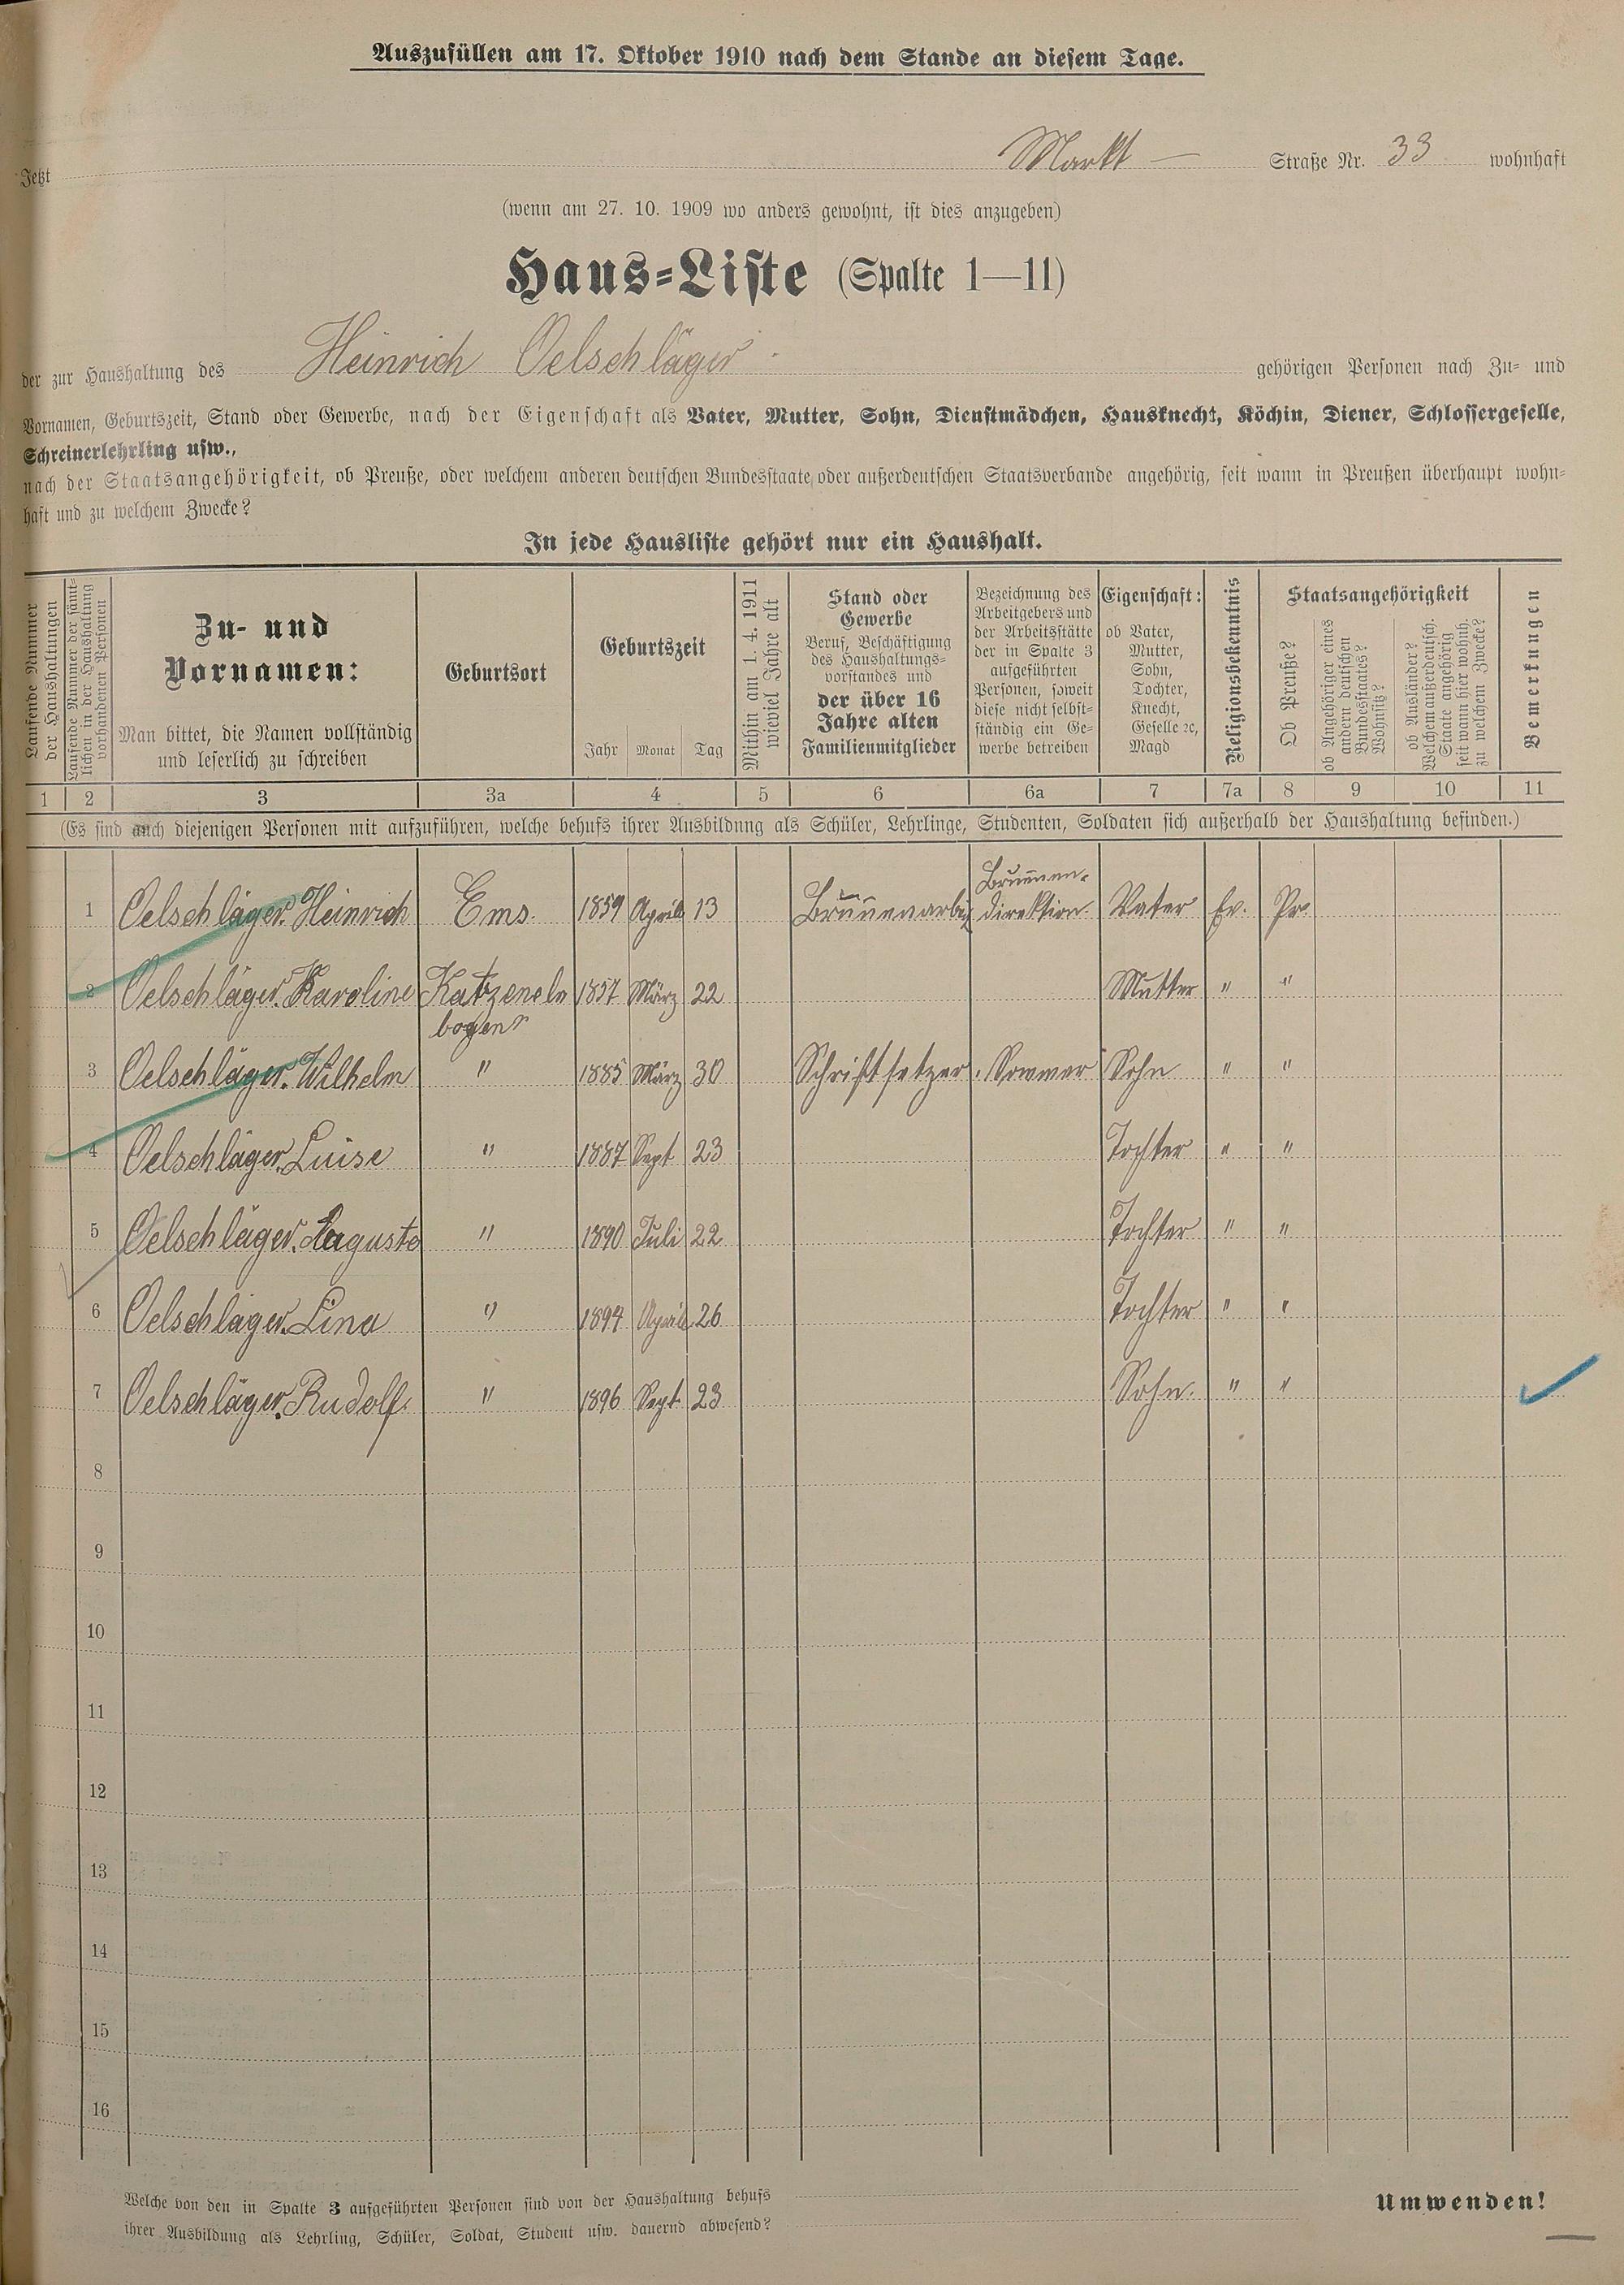 Auszufüllen am 17. Oktober 1910 nach dem Stande an diesem Tage.
Jetzt Markt — Straße Nr. 33 wohnhaft
(wenn am 27. 10. 1909 wo anders gewohnt, ist dies anzugeben)
Haus-Liste (Spalte 1—11)
der zur Haushaltung des Heinrich Oelschläger. gehörigen Personen nach Zu- und
Vornamen, Geburtszeit, Stand oder Gewerbe, nach der Eigenschaft als Vater, Mutter, Sohn, Dienstmädchen, Hausknecht, Köchin, Diener, Schlossergeselle,
Schreinerlehrling usw.,
nach der Staatsangehörigkeit, ob Preuße, oder welchem anderen deutschen Bundesstaate oder außerdeutschen Staatsverbande angehörig, seit wann in Preußen überhaupt wohn-
haft und zu welchem Zwecke?
In jede Hausliste gehört nur ein Haushalt.
Laufende Nummer
der Haushaltungen
Laufende Nummer der sämt-
lichen in der Haushaltung
vorhandenen Personen
Zu- und
Vornamen:
Man bittet, die Namen vollständig
und leserlich zu schreiben
Geburtsort
Geburtszeit
Jahr Monat Tag
Mithin am 1. 4. 1911
wieviel Jahre alt
Stand oder
Gewerbe
Beruf, Beschäftigung
des Haushaltungs-
vorstandes und
der über 16
Jahre alten
Familienmitglieder
Bezeichnung des
Arbeitgebers und
der Arbeitsstätte
der in Spalte 3
aufgeführten
Personen, soweit
diese nicht selbst-
ständig ein Ge-
werbe betreiben
Eigenschaft:
ob Vater,
Mutter,
Sohn,
Tochter,
Knecht,
Geselle ꝛc,
Magd
Religionsbekenntnis
Staatsangehörigkeit
Ob Preuße?
ob Angehöriger eines
andern deutschen
Bundesstaates?
Wohnsitz?
ob Ausländer?
Welchem außerdeutsch.
Staate angehörig
seit wann hier wohnh.
zu welchem Zwecke?
Bemerkungen
1 2 3 3a 4 5 6 6a 7 7a 8 9 10 11
(Es sind auch diejenigen Personen mit aufzuführen, welche behufs ihrer Ausbildung als Schüler, Lehrlinge, Studenten, Soldaten sich außerhalb der Haushaltung befinden.)
Brunnen-
1 Oelschläger. Heinrich Ems. 1859 April 13 Brunnenarbeit direktion. Vater Ev. Pr.
2 Oelschläger. Karoline Katzeneln 1857 März 22 Mutter " "
bogen
3 Oelschläger. Wilhelm " 1885 März 30 Schriftsetzer. Sommer Sohn " "
4 Oelschläger. Luise " 1887 Sept 23 Tochter " "
5 Oelschläger. Auguste " 1890 Juli 22 Tochter " "
6 Oelschläger. Lina " 1894 April 26 Tochter " "
7 Oelschläger. Rudolf. " 1896 Sept. 23 Sohn. " "
8
9
10
11
12
13
14
15
16
Welche von den in Spalte 3 aufgeführten Personen sind von der Haushaltung behufs
ihrer Ausbildung als Lehrling, Schüler, Soldat, Student usw. dauernd abwesend?
Umwenden!